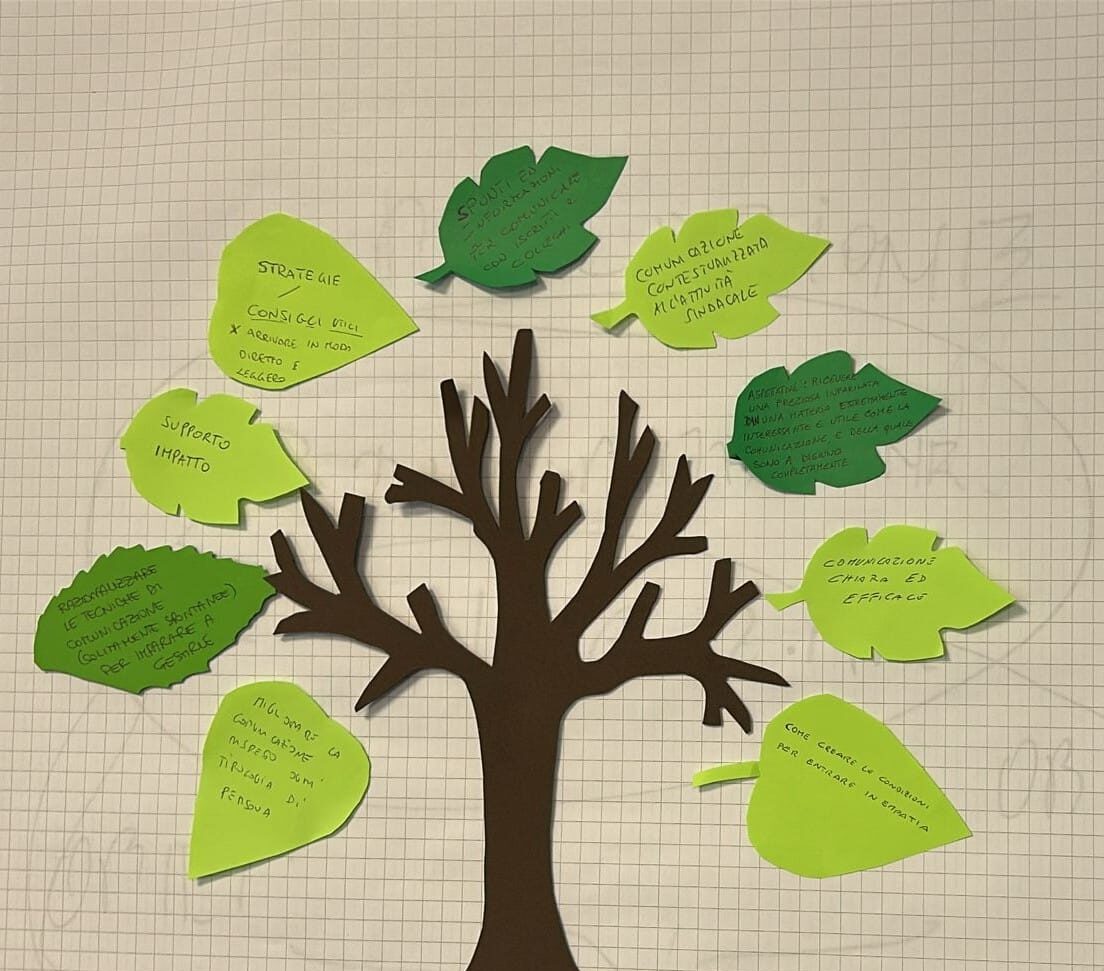 SPUNTI ED
INFORMAZIONI
PER COMUNICARE
CON ISCRITTI E
COLLEGHI
COMUNICAZIONE
CONTESTUALIZZATA
ALL'ATTIVITÀ
SINDACALE
STRATEGIE
/
CONSIGLI UTILI
X ARRIVARE IN MODO
DIRETTO E
LEGGERO
ASPETTATIVE: RICEVERE
UNA PREZIOSA INFARINATA
UNA MATERIA ESTREMAMENTE
INTERESSANTE E UTILE COME LA
COMUNICAZIONE, E DELLA QUALE
SONO A DIGIUNO
COMPLETAMENTE
SUPPORTO
IMPATTO
COMUNICAZIONE
CHIARA ED
EFFICACE
RAZIONALIZZARE
LE TECNICHE DI
COMUNICAZIONE
(SOLITAMENTE SPONTANEE)
PER IMPARARE A
GESTIRLE
MIGLIORARE LA
COMUNICAZIONE
OGNI
TIPOLOGIA DI
PERSONA
COME CREARE LE CONDIZIONI
PER ENTRARE IN EMPATIA